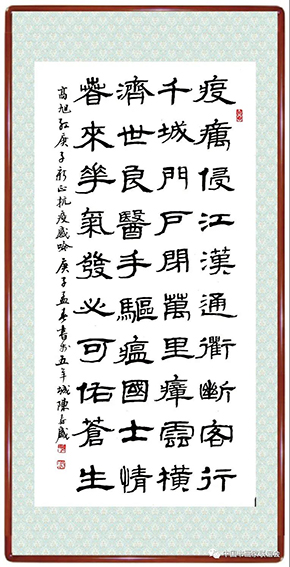 疫癘侵江漢通衢斷客行
千城門戶閉萬里瘴雲橫
濟世良醫手驅瘟國士情
春來華氣發必可佑蒼生
高旭紅庚子新正抗疫感吟 庚子孟春書於五羊城陳